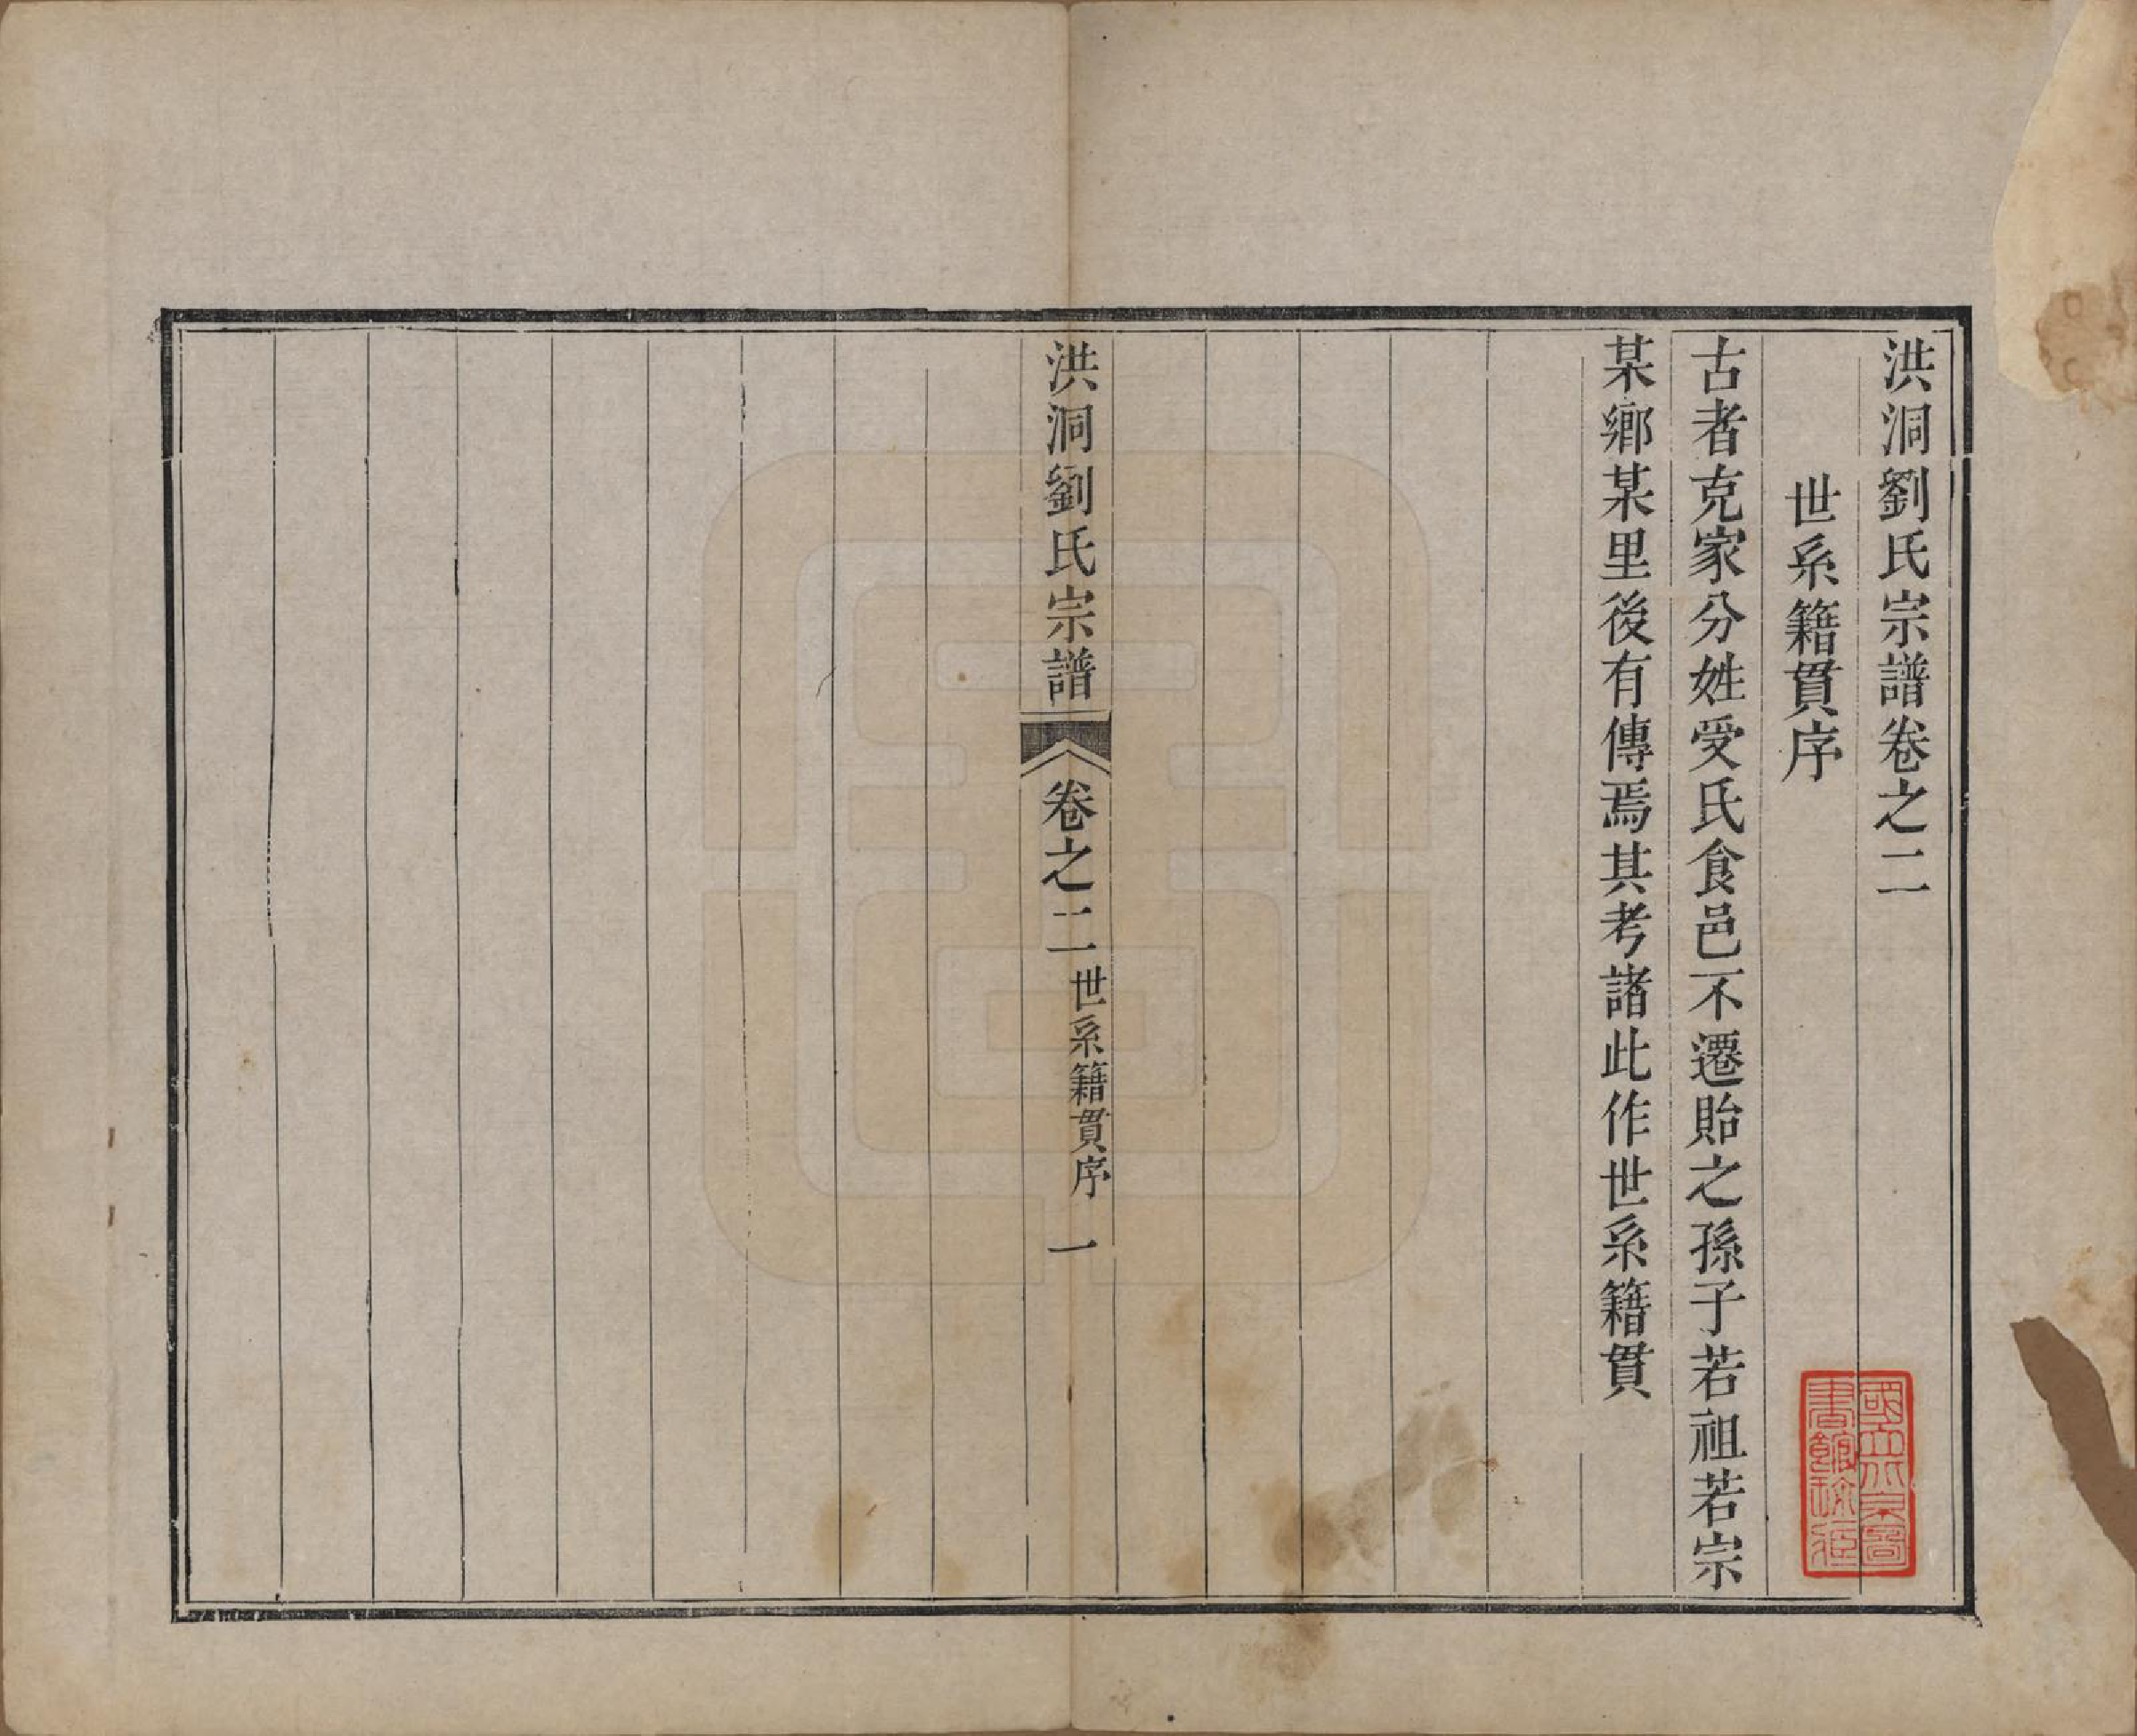 洪洞劉氏宗譜卷之二
世系籍貫序
古者克家分姓受氏食邑不遷貽之孫子若祖若宗
某鄉某里後有傳焉其考諸此作世系籍貫
洪洞劉氏宗譜
卷之二
世系籍貫序
一
國立北京圖
書館珍藏